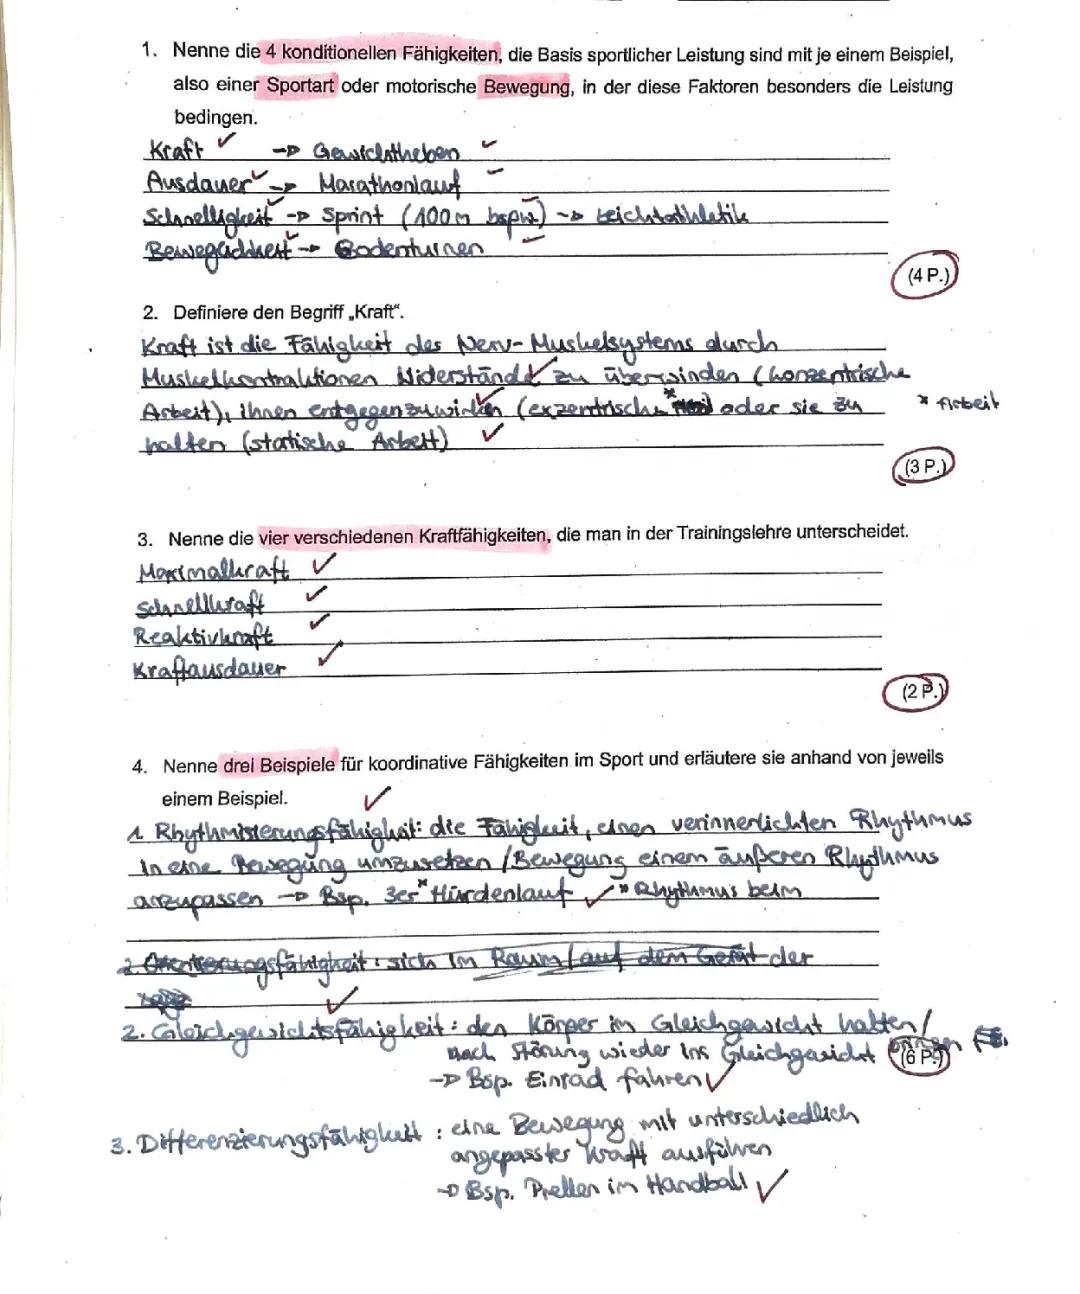 1. Nenne die 4 konditionellen Fähigkeiten, die Basis sportlicher Leistung sind mit je einem Beispiel,
also einer Sportart oder motorische Bewegung, in der diese Faktoren besonders die Leistung
bedingen.
Kraft -> Gewichtheben
Ausdauer -> Marathonlauf
Schnelligkeit -> Sprint (100m bspw) -> Leichtathletik
Beweglichkeit -> Bodenturnen
(4 P.)
2. Definiere den Begriff „Kraft“.
Kraft ist die Fähigkeit des Nerv-Muskelsystems durch
Muskelkontraktionen Widerstände zu überwinden (konzentrische
Arbeit), ihnen entgegenzuwirken (exzentrische * oder sie zu
* Arbeit
halten (statische Arbeit)
(3 P.)
3. Nenne die vier verschiedenen Kraftfähigkeiten, die man in der Trainingslehre unterscheidet.
Maximalkraft
Schnellkraft
Reaktivkraft
Kraftausdauer
(2 P.)
4. Nenne drei Beispiele für koordinative Fähigkeiten im Sport und erläutere sie anhand von jeweils
einem Beispiel.
1. Rhythmisierungsfähigkeit: die Fähigkeit, einen verinnerlichten Rhythmus
in eine Bewegung umzusetzen / Bewegung einem äußeren Rhythmus
anzupassen -> Bsp. 3er * Hürdenlauf * Rhythmus beim
2 Orientierungsfähigkeit: sich im Raum / auf dem Gerät der
2. Gleichgewichtsfähigkeit: den Körper im Gleichgewicht halten /
nach Störung wieder ins Gleichgewicht bringen
(6 P.)
-> Bsp. Einrad fahren
3. Differenzierungsfähigkeit: eine Bewegung mit unterschiedlich
angepasster Kraft ausführen
-> Bsp. Prellen im Handball